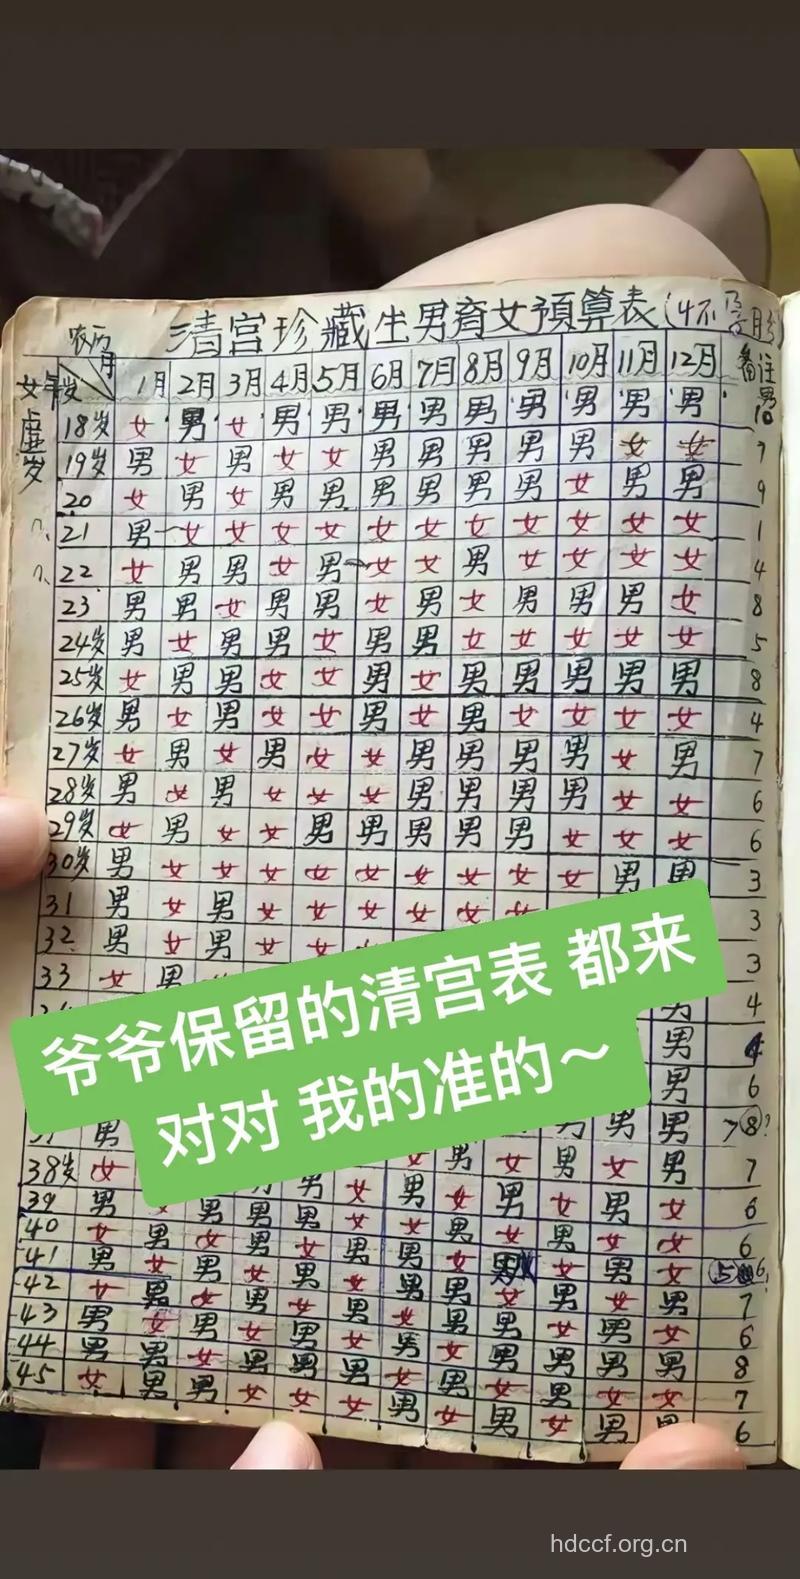 清宫珍藏生男育女預算表(4不孕月份
农历 月
女年岁 1月 2月 3月 4月 5月 6月 7月 8月 9月 10月 11月 12月 备注
虚岁
男
18岁 女 男 女 男 男 男 男 男 男 男 男 男 10
19岁 男 女 男 女 女 男 男 男 男 男 女 女 7
20 女 男 女 男 男 男 男 男 男 女 男 男 9
21 男 女 女 女 女 女 女 女 女 女 女 女 1
22 女 男 男 女 男 女 女 男 女 女 女 女 4
23 男 男 女 男 男 女 男 女 男 男 男 女 8
24岁 男 女 男 男 女 男 男 女 女 女 女 女 5
25岁 女 男 男 女 女 男 女 男 男 男 男 男 8
26岁 男 女 男 女 女 男 女 男 女 女 女 女 4
27岁 女 男 女 男 女 女 男 男 男 男 女 男 7
28岁 男 女 男 女 女 女 男 男 男 男 女 女 6
29岁 女 男 女 女 男 男 男 男 男 女 女 女 6
30岁 男 女 女 女 女 女 女 女 女 女 男 男 3
31 男 女 男 女 女 女 女 女 女 3
32 男 女 男 女 女 3
33 女 男 3
男 4
爷爷保留的清宫表 都来
对对 我的准的～
男 4
男 6
男 男 男 男 7 8?
38岁 女 男 男 女 女 男 女 男 女 男 7
39 男 男 男 男 女 男 女 男 女 男 女 6
40 女 男 女 男 女 女 男 女 男 女 女 6
41 男 女 男 女 男 男 女 男 女 男 女 5 6?
42 女 男 女 男 女 男 男 女 男 女 男 7
43 男 女 男 女 男 女 男 男 女 男 女 6
44 男 男 女 男 男 女 男 女 男 男 男 男 8
45 女 男 男 女 女 男 女 男 女 男 女 女 7
女 男 女 男 女 男 男 6
hdccf.org.cn